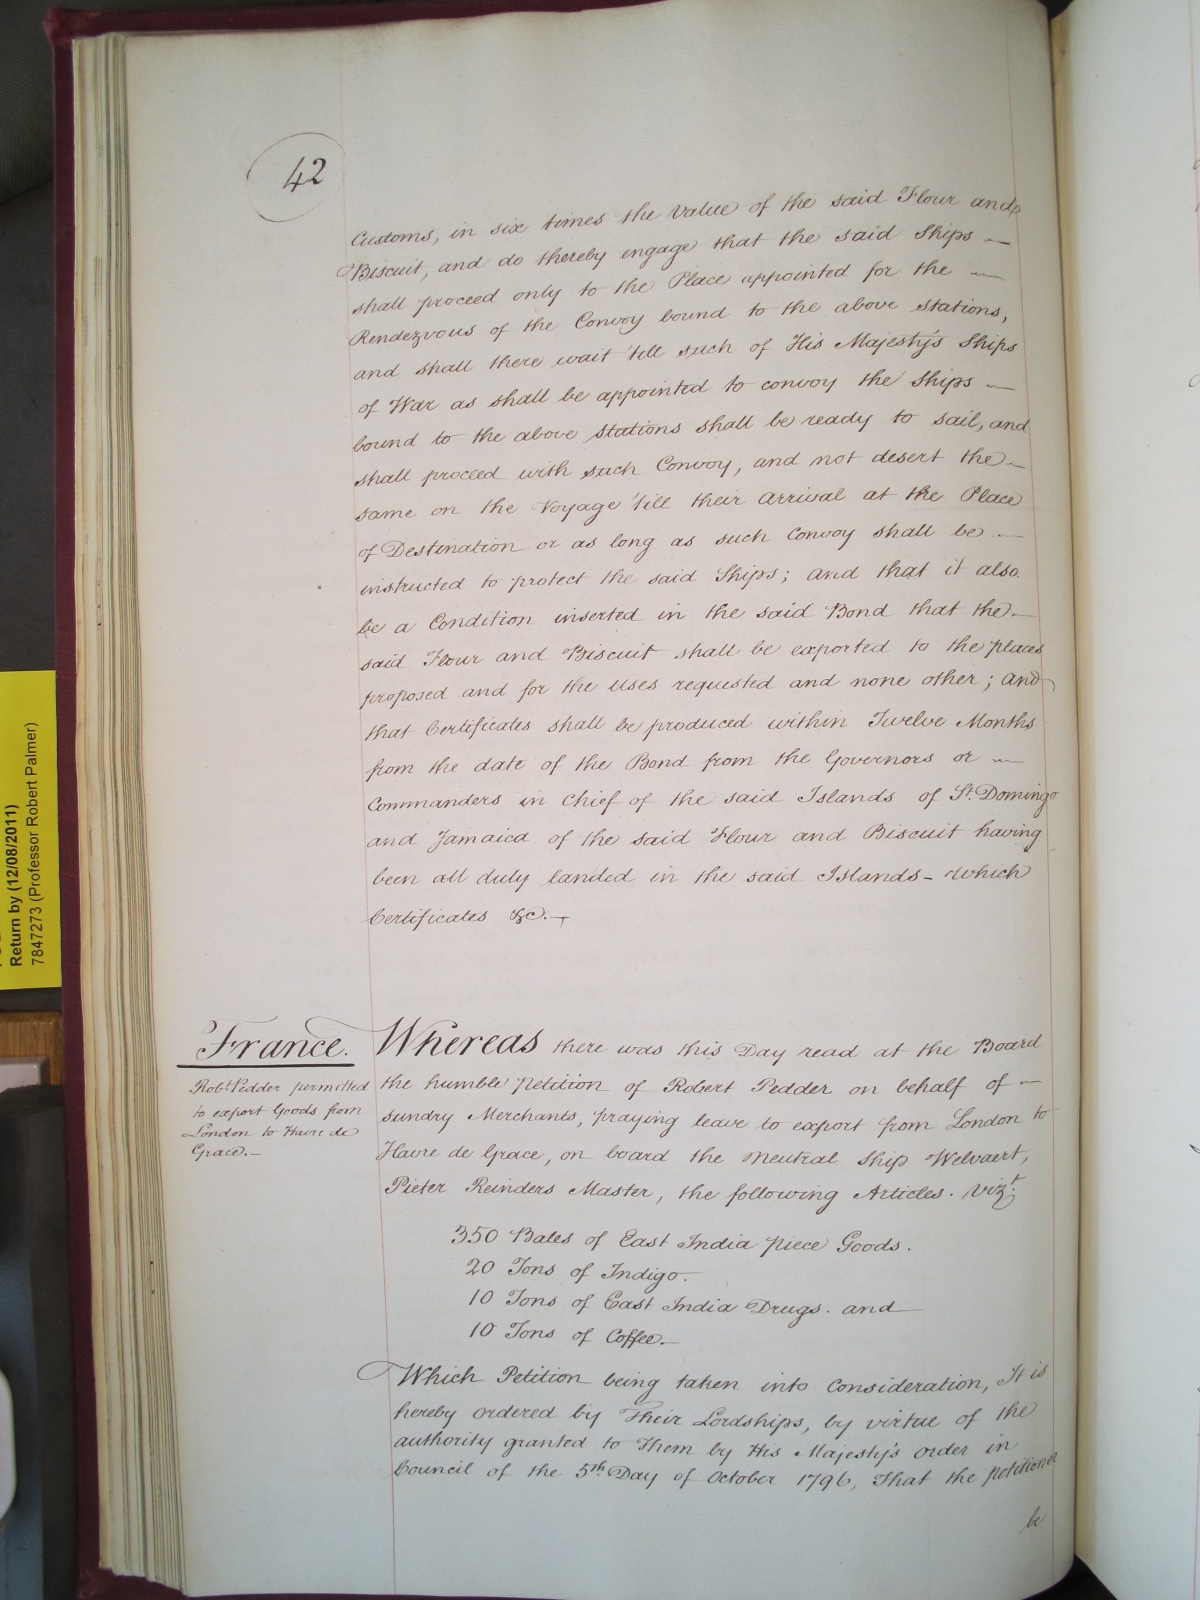 42
Customs, in six times the value of the said Flour and
Biscuit, and do thereby engage that the said Ships —
shall proceed only to the Place appointed for the —
Rendezvous of the Convoy bound to the above Stations,
and shall there wait 'till such of His Majesty's Ships
of War as shall be appointed to convoy the Ships —
bound to the above Stations shall be ready to sail, and
shall proceed with such Convoy, and not desert the —
same on the Voyage 'till their Arrival at the Place
of Destination or as long as such Convoy shall be —
instructed to protect the said Ships; and that it also
be a Condition inserted in the said Bond that the —
said Flour and Biscuit shall be exported to the places
proposed and for the Uses requested and none other; and
that Certificates shall be produced within Twelve Months
from the date of the Bond from the Governors or —
Commanders in Chief of the said Islands of St. Domingo
and Jamaica of the said Flour and Biscuit having
been all duly landed in the said Islands - which
Certificates &c. —
France.
Robt. Pedder permitted
to export Goods from
London to Havre de
Grace. —
Whereas there was this Day read at the Board
the humble petition of Robert Pedder on behalf of —
sundry Merchants, praying leave to export from London to
Havre de Grace, on board the Neutral Ship Welvaert,
Pieter Reinders Master, the following Articles. Vizt.
350 Bales of East India piece Goods.
20 Tons of Indigo.
10 Tons of East India Drugs. and
10 Tons of Coffee. —
Which Petition being taken into Consideration, It is
hereby ordered by Their Lordships, by virtue of the
authority granted to Them by His Majesty's Order in
Council of the 5th. Day of October 1796, That the petitioner
be
Return by (12/08/2011)
7847273 (Professor Robert Palmer)